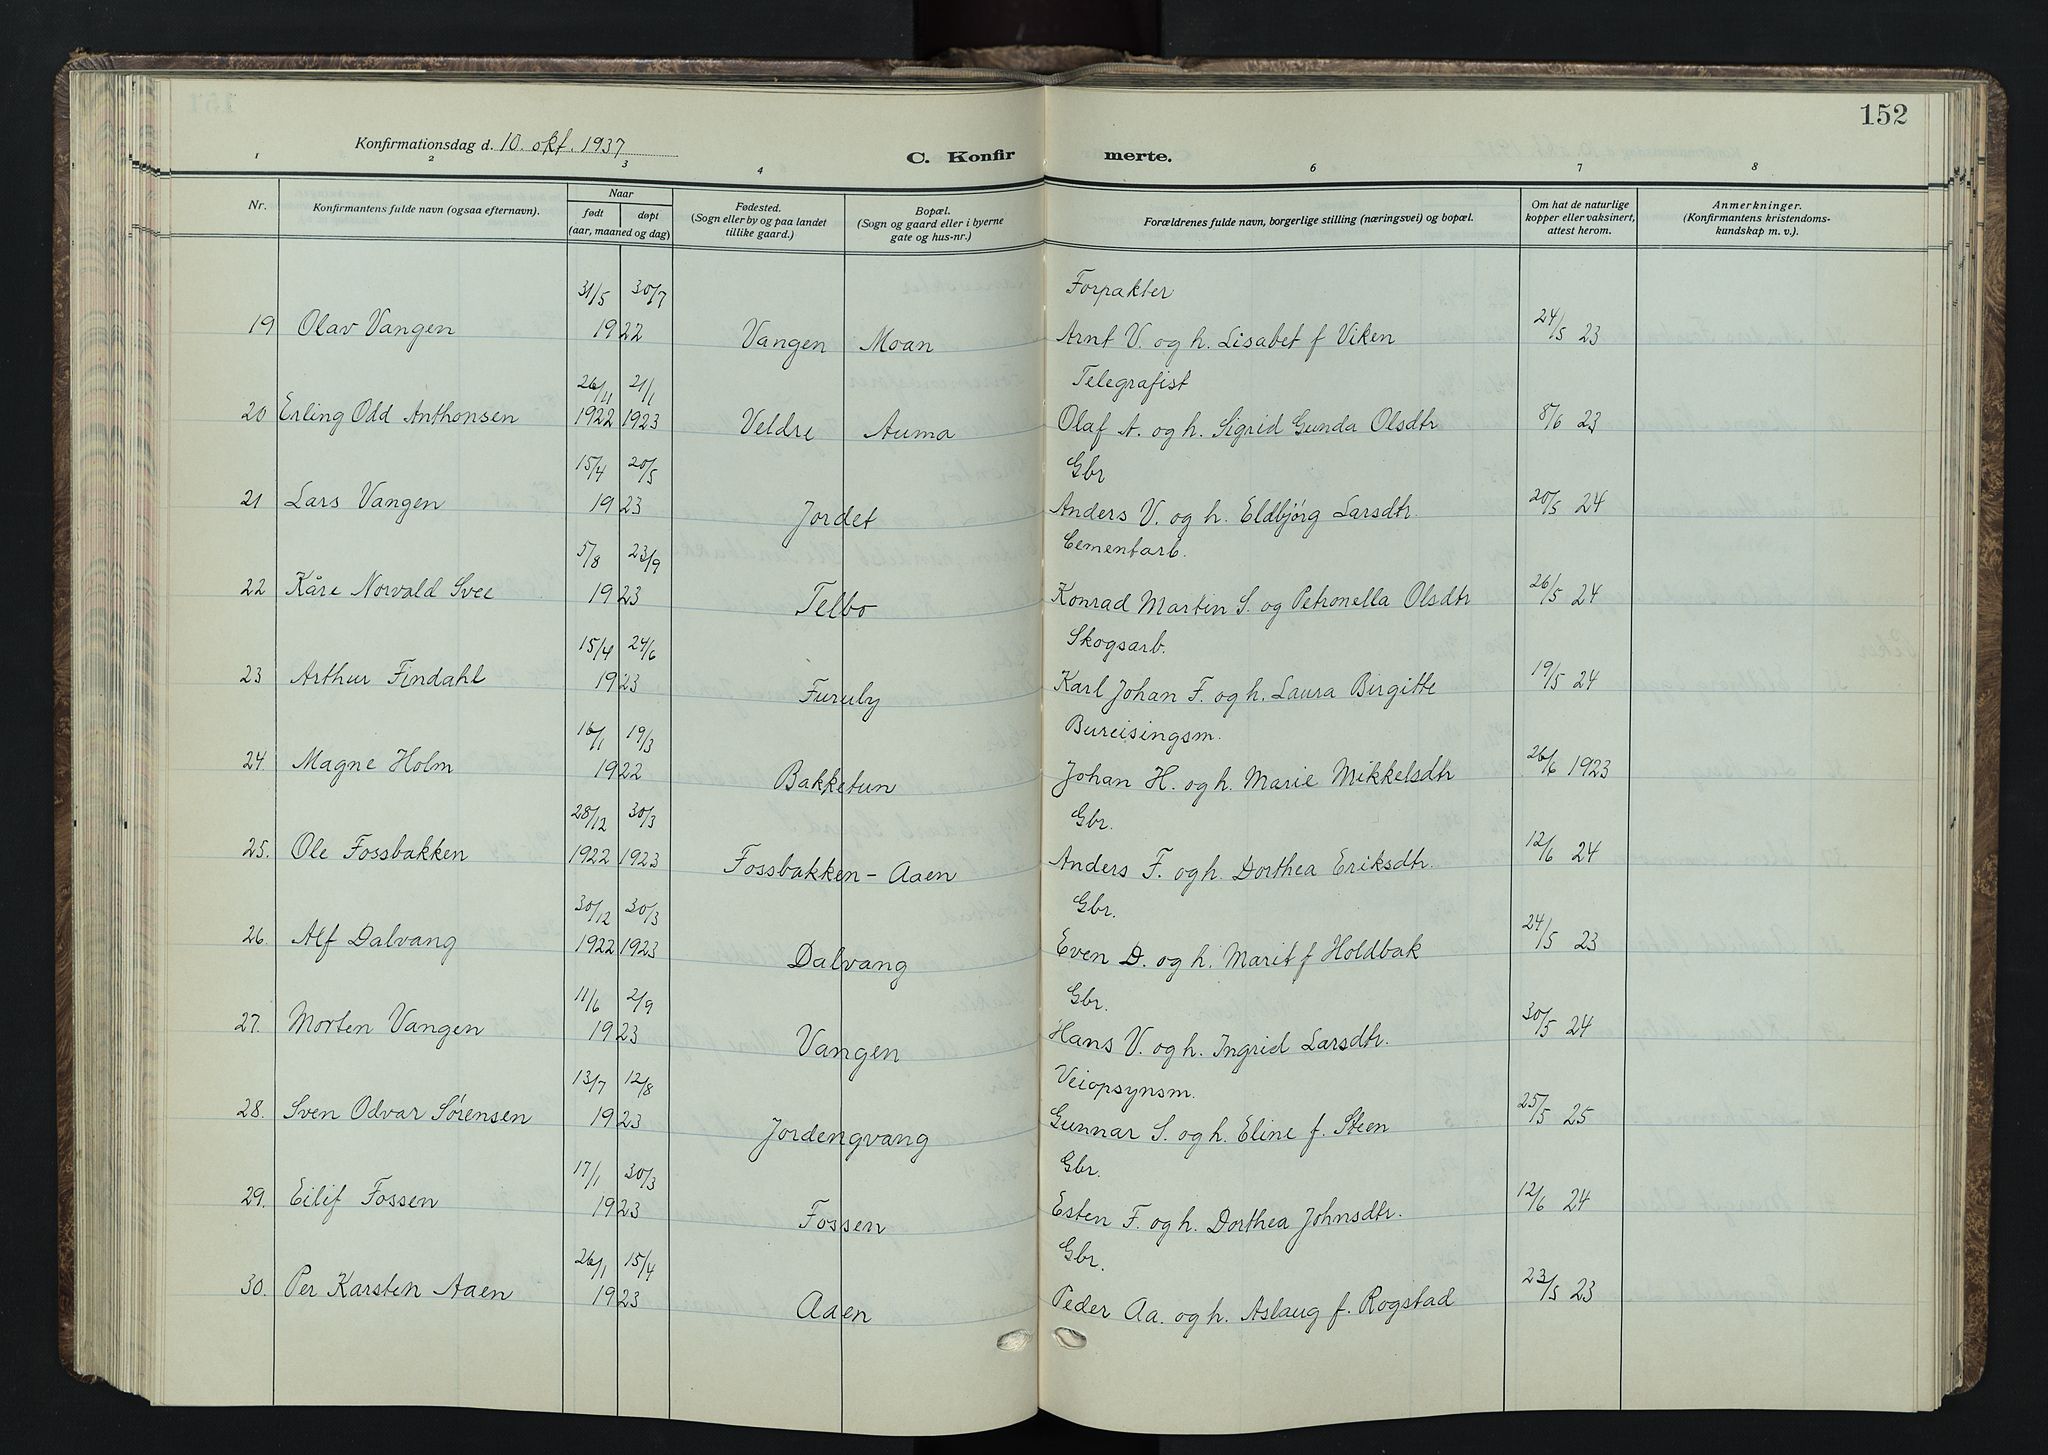 152
Konfirmationsdag d. 10. okt. 1937
C. Konfirmerte.
1 2 3 4 6 7 8
Nr. Konfirmantens fulde navn (ogsaa efternavn). Naar født døpt (aar, maaned og dag) Fødested. (Sogn eller by og paa landet tillike gaard.) Bopæl. (Sogn og gaard eller i byerne gate og hus-nr.) Forældrenes fulde navn, borgerlige stilling (næringsvei) og bopæl. Om hat de naturlige kopper eller vaksinert, attest herom. Anmerkninger. (Konfirmantens kristendoms-kundskap m. v.).
31/5 30/7 Forpakter
19 Olav Vangen 1922 Vangen Moan Arnt V. og h. Lisabet f Viken 24/5 23
26/11 21/1 Telegrafist
20 Erling Odd Anthonsen 1922 1923 Veldre Auma Olaf A. og h. Sigrid Gunda Olsdtr 8/6 23
15/4 20/5 Gbr
21 Lars Vangen 1923 Jordet Anders V. og h. Eldbjörg Larsdtr. 20/5 24
5/8 23/9 Cementarb.
22 Kåre Norvald Svee 1923 Telbo Konrad Martin S. og Petronella Olsdtr 26/5 24
15/4 24/6 Skogsarb.
23 Arthur Findahl 1923 Furuby Karl Johan F. og h. Laura Birgitte 19/5 24
16/1 19/3 Bureisingsm.
24 Magne Holm 1922 Bakketun Johan H. og h. Marie Mikkelsdtr 26/6 1923
28/12 30/3 Gbr.
25. Ole Fossbakken 1922 1923 Fossbakken - Aaen Anders F. og h. Dorthea Eriksdtr. 12/6 24
30/12 30/3 Gbr.
26. Alf Dalvang 1922 1923 Dalvang Even D. og h. Marit f Holdbak 24/5 23
11/6 2/9 Gbr.
27. Morten Vangen 1923 Vangen Hans V. og h. Ingrid Larsdtr. 30/5 24
13/7 12/8 Veiopsynsm.
28. Sven Odvar Sørensen 1923 Jordengvang Gunnar S. og h. Eline f. Steen 25/5 25
17/1 30/3 Gbr.
29. Eilif Fossen 1923 Fossen Esten F. og h. Dorthea Johnsdtr. 12/6 24
26/1 15/4 Gbr.
30. Per Karsten Aaen 1923 Aaen Peder Aa. og h. Aslaug f. Rogstad 23/5 23